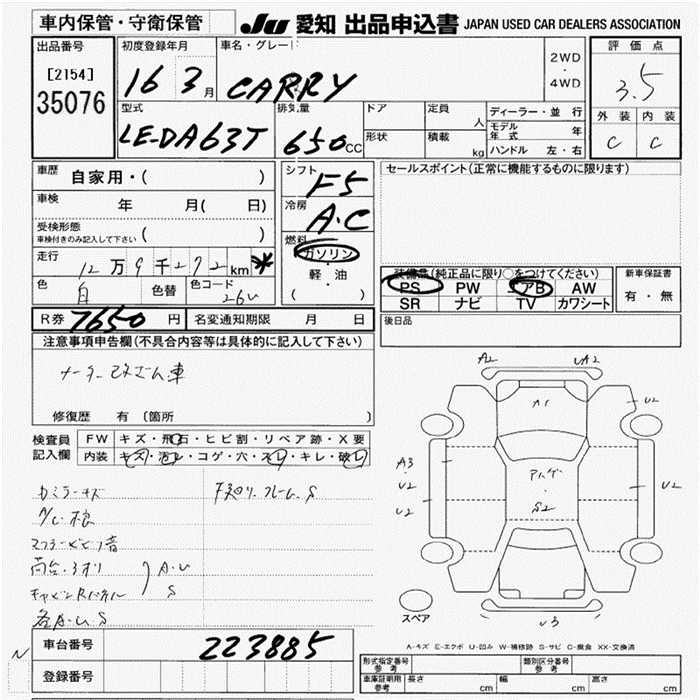 車内保管・守衛保管
JU 愛知 出品申込書 JAPAN USED CAR DEALERS ASSOCIATION
出品番号
[2154]
35076
初度登録年月
16 3月
車名・グレード
CARRY
2WD
・
4WD
評価点
3.5
外装 内装
C C
型式
LE-DA63T
排気量
650cc
ドア
形状
定員
人
積載
kg
ディーラー・並行
モデル年式 年
ハンドル 左・右
車歴 自家用・( )
車検 年 月( 日)
受検形態
車検付きのみ記入して下さい ( )
走行
12万9千272km *
色
白
色替
色コード
26U
シフト
F5
冷房
A.C
燃料
ガソリン
・
軽・油
( )
セールスポイント(正常に機能するものに限ります)
装備品(純正品に限り○をつけてください)
PS PW アB AW
SR ナビ TV カワシート
新車保証書
有・無
R券 7650 円
名変通知期限 月 日
後日品
注意事項申告欄(不具合内容等は具体的に記入して下さい)
メーター改ざん車
修復歴 有 〔箇所 〕
検査員記入欄
FW キズ・飛石・ヒビ割・リペア跡・X要
内装 キズ・汚レ・コゲ・穴・スレ・キレ・破レ
A.U
S
各A.U.S
A2
UA2
A1
U2
A3
U2
U2
U2
S2
U3
スペア
A-キズ E-エクボ U-凹み W-補修跡 S-サビ C-腐食 XX-交換済
車台番号
223885
N
登録番号
形式指定番号 参考
類別区分番号 参考
車庫証明用 参考
長さ cm
幅 cm
高さ cm